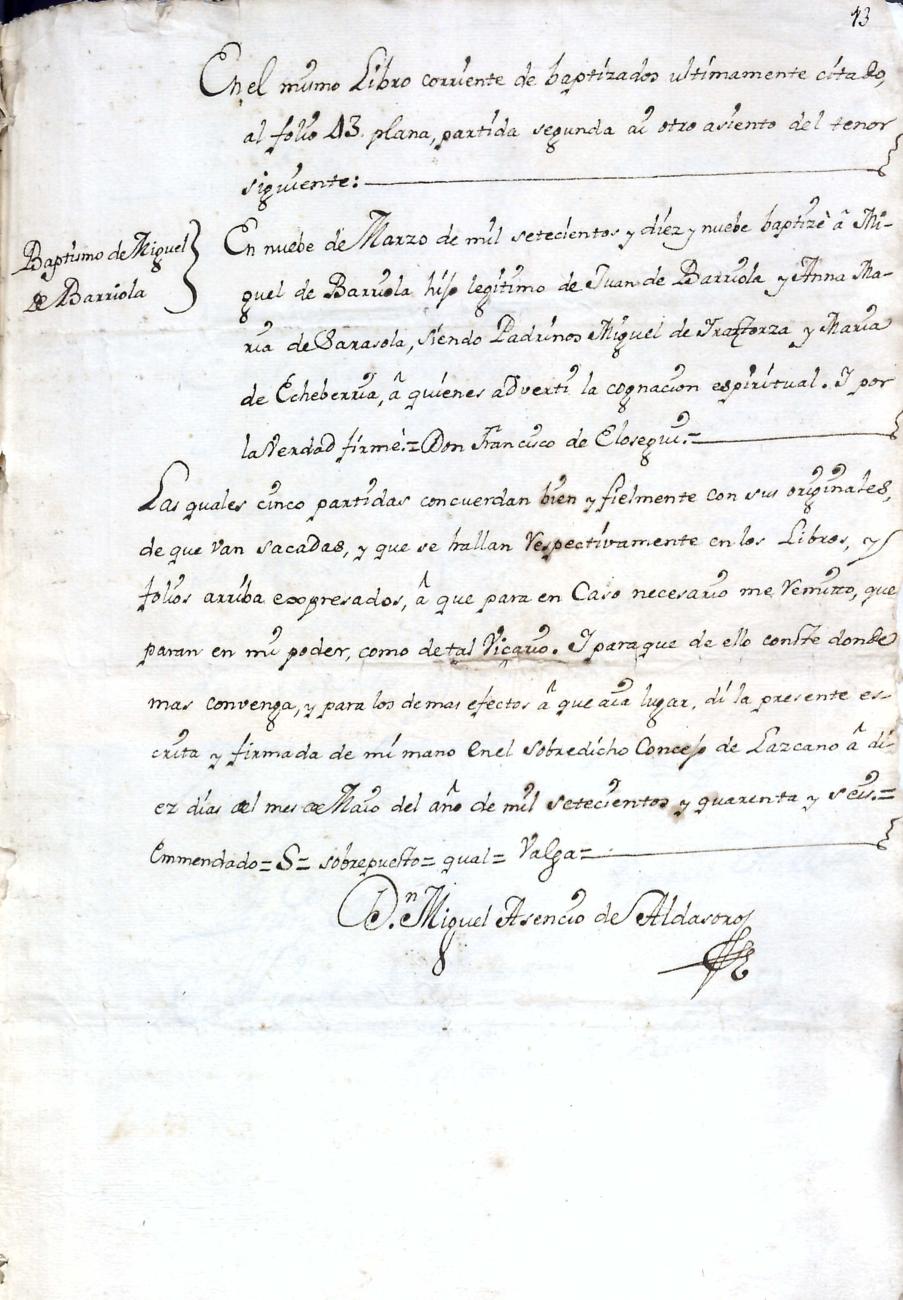 13
En el mismo Libro corriente de baptizados ultimamente citado,
al folio 43. plana, partida segunda ai otro asiento del tenor
siguiente:
Baptismo de Miguel
de Barriola
En nuebe de Marzo de mil setecientos y diez y nuebe baptizè â Mi-
guel de Barriola hijo legitimo de Juan de Barriola y Anna Ma-
ria de Sarasola, siendo Padrinos Miguel de y Maria
de Echeberria, â quienes adverti la cognacion espiritual. I por
la Verdad firmé = Don Francisco de Elosegui. =
Las quales cinco partidas concuerdan bien y fielmente con sus originales,
de que van sacadas, y que se hallan respectivamente en los Libros, y
folios arriba expresados, â que para en Caso necesario me remitto, que
paran en mi poder, como de tal Vicario. I para que de ello conste donde
mas convenga, y para los demas efectos â que aia lugar, di la presente es-
crita y firmada de mi mano en el sobredicho Concejo de Lazcano â di-
ez dias del mes de Maio del año de mil setecientos y quarenta y seis. =
Emmendado = S = sobrepuesto = qual = Valga =
D.n Miguel Asencio de Aldasoro